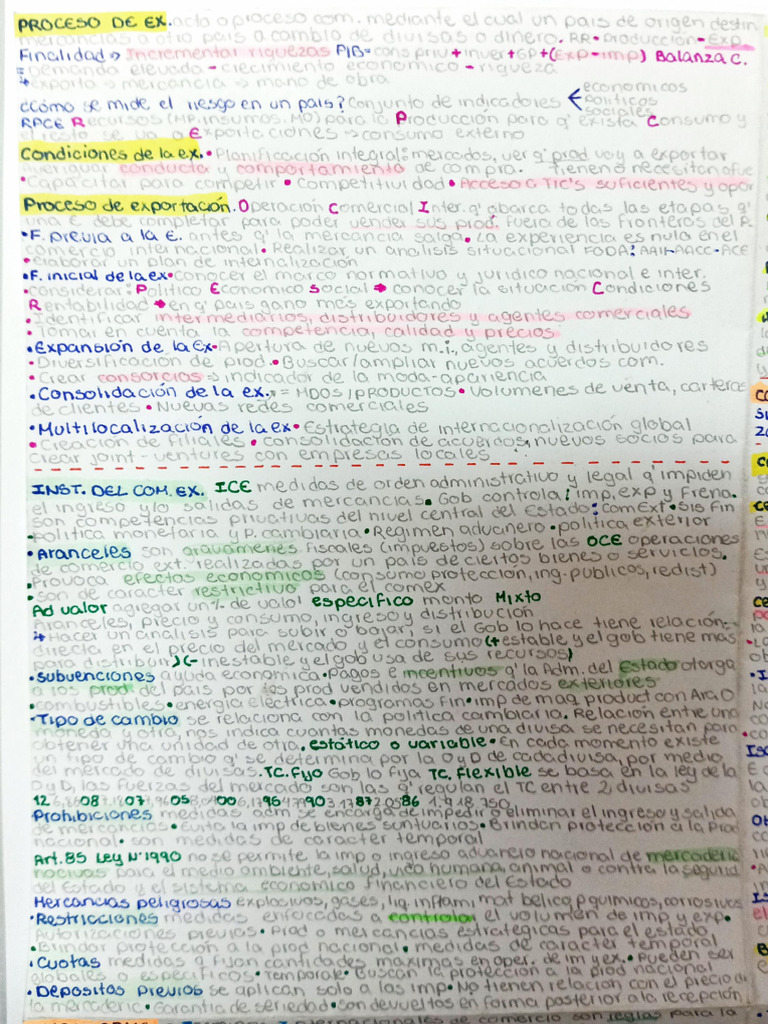 PROCESO DE EX. acto o proceso com. mediante el cual un pais de origen destin
mercancias a otro pais a cambio de divisas o dinero. RR•Producción•Exp
Finalidad → Incrementar riquezas PIB= cons priv+inver+GP+(Exp-imp) Balanza C.
=Demanda elevado - crecimiento economico - riqueza
↳ exporto → mercancia → mano de obra
¿Cómo se mide el riesgo en un pais? Conjunto de indicadores < economicos
politicos
sociales
RPCE Recursos (MP. insumos. MO) para la Producción para q' exista Consumo y
el resto se va a Exportaciones → consumo externo
Condiciones de la ex. • Planificación integral: mercados, ver q' prod voy a exportar
averiguar conducta y comportamiento de compra. tienen o necesitan
• Capacitar para competir • Competitividad • Acceso a TIC's suficientes y opor
Proceso de exportación. Operación Comercial Inter. q' abarca todas las etapas q'
una E debe completar para poder vender sus prod. fuera de los fronteros del P.
• F. previa a la E. antes q' la mercancia salga. La experiencia es nula en el
comercio internacional • Realizar un analisis situacional FODA:
• elaborar un plan de internalización
• F. inicial de la ex • conocer el marco normativo y juridico nacional e inter.
• considerar: Politico Economico Social → conocer la situación Condiciones
Rentabilidad → en q' pais gano más exportando
• Identificar intermediarios, distribuidores y agentes comerciales
• Tomar en cuenta la competencia, calidad y precios
• Expansión de la Ex • Apertura de nuevos m.i., agentes y distribuidores
• Diversificación de prod. • Buscar/ampliar nuevos acuerdos com.
• Crear consorcios → indicador de la moda-apariencia
• Consolidación de la ex. = MDOS/PRODUCTOS • Volumenes de venta, carteras
de clientes • Nuevas redes comerciales
• Multilocalización de la ex • Estrategia de internacionalización global
• Creación de filiales • consolidación de acuerdos, nuevos socios para
crear joint-ventures con empresas locales
INST. DEL COM. EX. ICE medidas de orden administrativo y legal q' impiden
el ingreso y/o salidas de mercancias. Gob controla: imp, exp y Frena.
son competencias privativas del nivel central del Estado: ComExt • Sis Fin
• Politica monetaria y P. cambiaria • Regimen aduanero • politica exterior
• Aranceles son gravámenes fiscales (impuestos) sobre las OCE operaciones
de comercio ext. realizadas por un pais de ciertos bienes o servicios.
• Provoca efectos economicos (consumo protección, ing-publicos, redist)
• son de caracter restrictivo para el comex
Ad valor agregar un % de valor especifico monto Mixto
Aranceles, precio y consumo, ingreso y distribución
↳ Hacer un análisis para subir o bajar, si el Gob lo hace tiene relación
directa en el precio del mercado y el consumo (+ estable y el gob tiene mas
para distribuir) (- inestable y el gob usa de sus recursos)
• Subvenciones ayuda economica • Pagos e incentivos q' la Adm. del Estado otorga
a los prod del pais por los prod vendidos en mercados exteriores
• combustibles • energia electrica • programas fin • imp de maq product con Ara 0
• Tipo de cambio se relaciona con la politica cambiaria. Relación entre una
moneda y otra, nos indica cuantas monedas de una divisa se necesitan para
obtener una unidad de otra. estático o variable • En cada momento existe
un tipo de cambio q' se determina por la O y D de cada divisa, por medio
del mercado de divisas. TC. Fijo Gob lo fija TC. Flexible se basa en la ley de la
O y D, las fuerzas del mercado son las q' regulan el TC entre 2 divisas
Prohibiciones medidas adm se encarga de impedir o eliminar el ingreso y salida
de mercancias • Evita la imp de bienes suntuarios • Brindan protección a la prod
nacional • son medidas de caracter temporal
Art. 85 Ley N°1990 no se permite la imp o ingreso aduanero nacional de mercaderia
nocivas para el medio ambiente, salud, vida humana, animal o contra la segurid
del Estado y el sistema economico financiero del Estado
Mercancias peligrosas explosivos, gases, liq. inflam, mat belico, p quimicos, corrosivos
• Restricciones medidas enfocadas a controlar el volumen de imp y exp.
Autorizaciones previas • Prod o mercancias estrategicas para el estado
• Brindar protección a la prod nacional • medidas de caracter temporal
• Cuotas medidas q' fijan cantidades maximas en oper. de im y ex. • Pueden ser
globales o especificos • Temporale • Buscan la protección a la prod nacional
• Depositos Previos se aplican solo a las imp • No tienen relación con el precio de
la mercaderia • Garantia de seriedad • son devueltos en forma posterior a la recepción